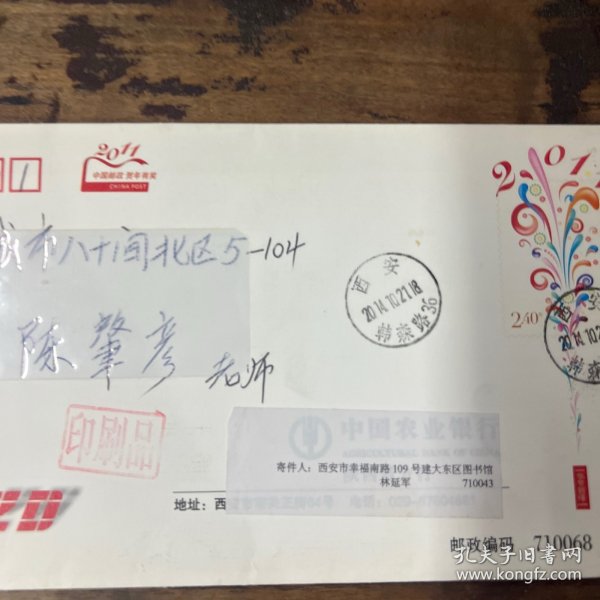 2011
中国邮政 贺年有奖
CHINA POST
1
2011
城市八十间北区5-104
陈肇彦 老师
西安
2014.10.21.18
韩森路36
2.40元
西安
2014.10.2
韩森路
印刷品
中国农业银行
寄件人：西安市幸福南路109号建大东区图书馆
林延军 710043
地址：西
邮政编码 710068
孔夫子旧书网
www.kongfz.com